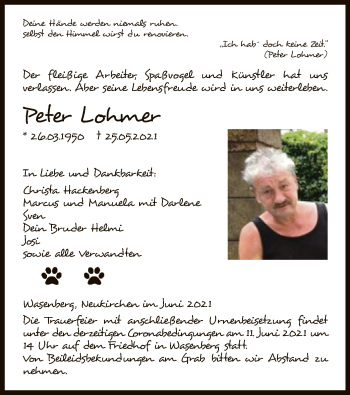 Deine Hände werden niemals ruhen.
selbst den Himmel wirst du renovieren.
„Ich hab' doch keine Zeit."
(Peter Lohmer)
Der fleißige Arbeiter, Spaßvogel und Künstler hat uns
verlassen. Aber seine Lebensfreude wird in uns weiterleben.
Peter Lohmer
* 26.03.1950 † 25.05.2021
In Liebe und Dankbarkeit:
Christa Hackenberg
Marcus und Manuela mit Darlene
Sven
Dein Bruder Helmi
Josi
sowie alle Verwandten
Wasenberg, Neukirchen im Juni 2021
Die Trauerfeier mit anschließender Urnenbeisetzung findet
unter den derzeitigen Coronabedingungen am 11. Juni 2021 um
14 Uhr auf dem Friedhof in Wasenberg statt.
Von Beileidsbekundungen am Grab bitten wir Abstand zu
nehmen.